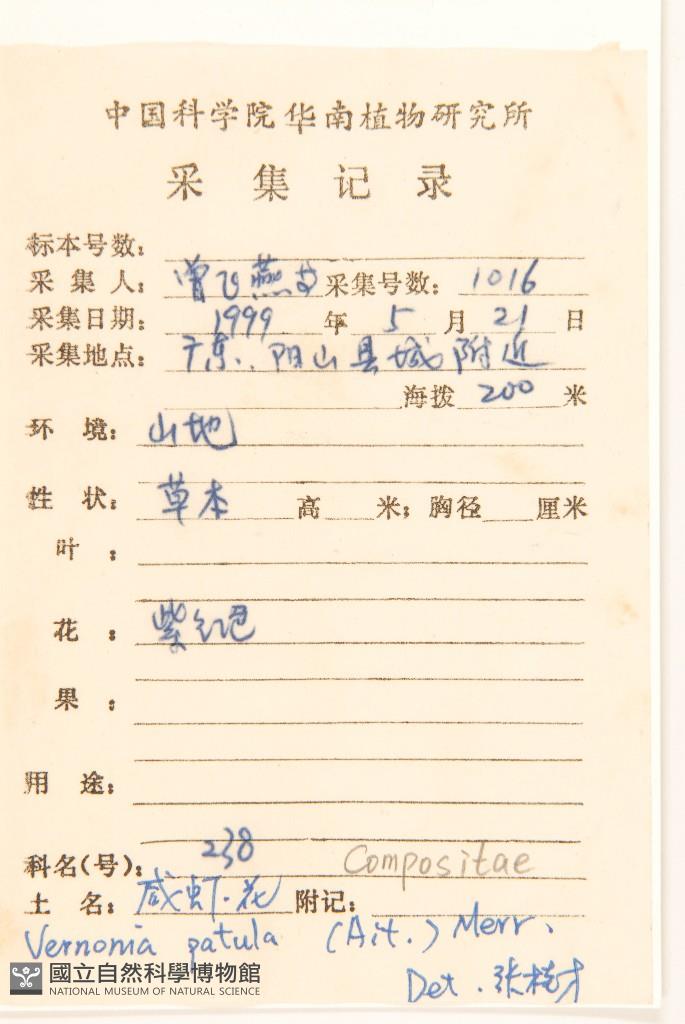 中国科学院华南植物研究所
采集记录
标本号数：
采集人：曾飞燕 采集号数：1016
采集日期：1999 年 5 月 21 日
采集地点：广东，阳山县城附近
海拨 200 米
环境：山地
性状：草本 高 米；胸径 厘米
叶：
花：紫红色
果：
用途：
科名(号)：238 Compositae
土名：咸虾花 附记：
Vernonia patula (Ait.) Merr.
Det. 张桂才
國立自然科學博物館
NATIONAL MUSEUM OF NATURAL SCIENCE